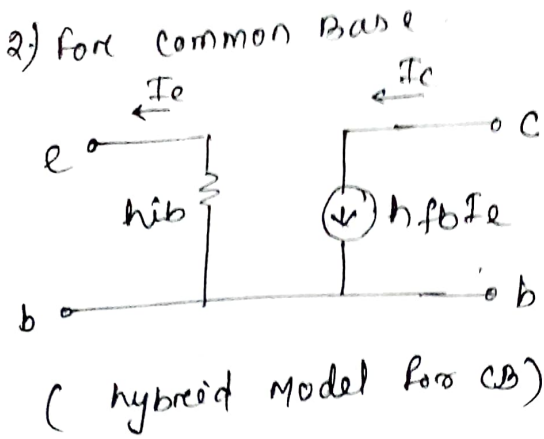 2) For Common Base
Ie
Ic
e
C
hib
hfbIe
b
b
( hybreid Model for CB)